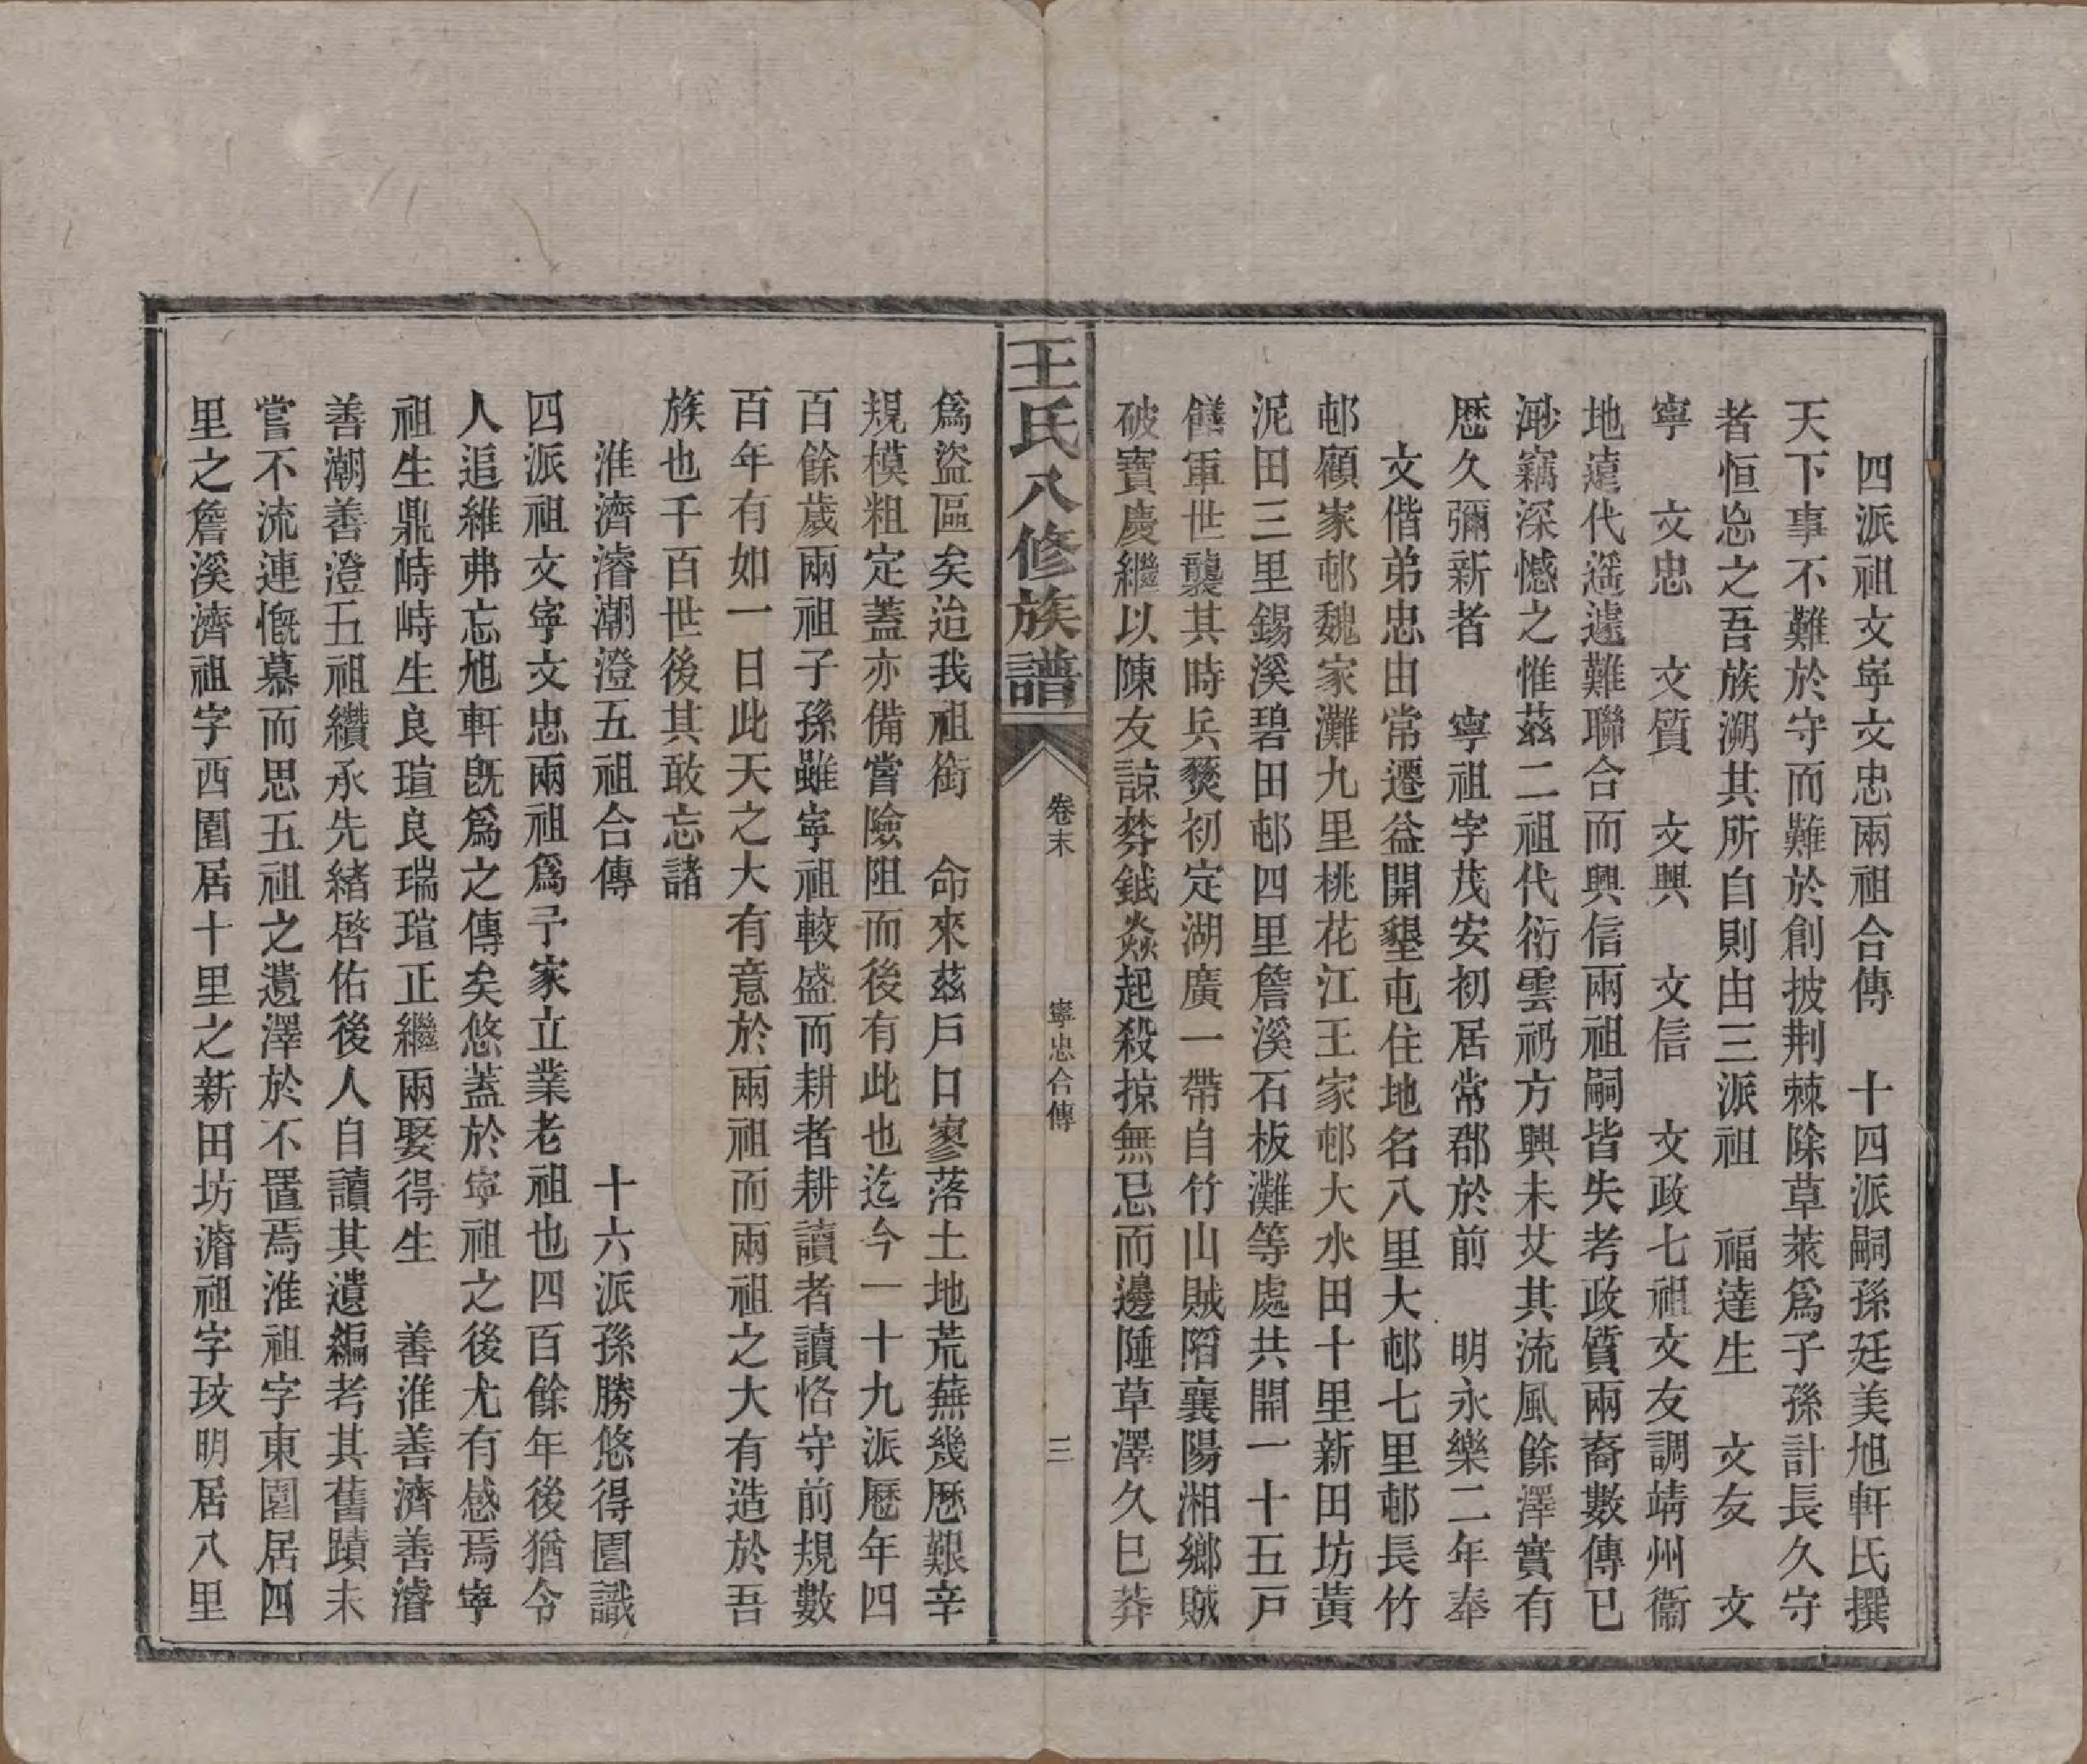 四派祖文寧文忠兩祖合傳　十四派嗣孫廷美旭軒氏撰
天下事不難於守而難於創披荆棘除草萊爲子孫計長久守
者恒忘之吾族溯其所自則由三派祖　福達生　文友　文
寧　文忠　文質　文興　文信　文政七祖文友調靖州衞
地遠代遥遽難聯合而興信兩祖嗣皆失考政質兩裔數傳已
渺竊深憾之惟茲二祖代衍雲礽方興未艾其流風餘澤實有
歷久彌新者　寧祖字茂安初居常郡於前　明永樂二年奉
文偕弟忠由常遷益開墾屯住地名八里大邨七里邨長竹
邨顧家邨魏家灘九里桃花江王家邨大水田十里新田坊黃
泥田三里錫溪碧田邨四里詹溪石板灘等處共開一十五戸
僐軍世襲其時兵燹初定湖廣一帶自竹山賊䧟襄陽湘鄉賊
破寶慶繼以陳友諒棼鉞焱起殺掠無忌而邊陲草澤久已莽
王氏八修族譜
卷末
寧忠合傳
三
爲盜區矣迨我祖銜　命來茲戶口寥落土地荒蕪幾歷艱辛
規模粗定蓋亦備嘗險阻而後有此也迄今一十九派歷年四
百餘歲兩祖子孫雖寧祖較盛而耕者耕讀者讀恪守前規數
百年有如一日此天之大有意於兩祖而兩祖之大有造於吾
族也千百世後其敢忘諸
淮濟濬潮澄五祖合傳　　　十六派孫勝悠得園識
四派祖文寧文忠兩祖爲予家立業老祖也四百餘年後猶令
人追維弗忘旭軒旣爲之傳矣悠蓋於寧祖之後尤有感焉寧
祖生鼎峙峙生良瑄良瑞瑄正繼兩娶得生　善淮善濟善濬
善潮善澄五祖纘承先緒啓佑後人自讀其遺編考其舊蹟未
嘗不流連慨慕而思五祖之遺澤於不置焉淮祖字東園居四
里之詹溪濟祖字西園居十里之新田坊濬祖字玟明居八里